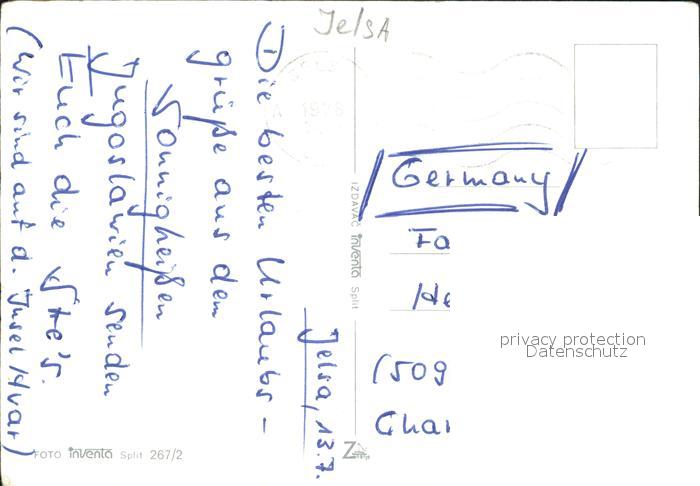 Jelsa
Jelsa, 13.7.
Die besten Urlaubs-
grüße aus dem
sonnigheißen
Jugoslawien senden
Euch die
(Wir sind auf d. Insel Hvar)
1978
Germany
Fa
He
(509
Char
privacy protection
Datenschutz
IZDAVAČ inventa Split
FOTO inventa Split 267/2